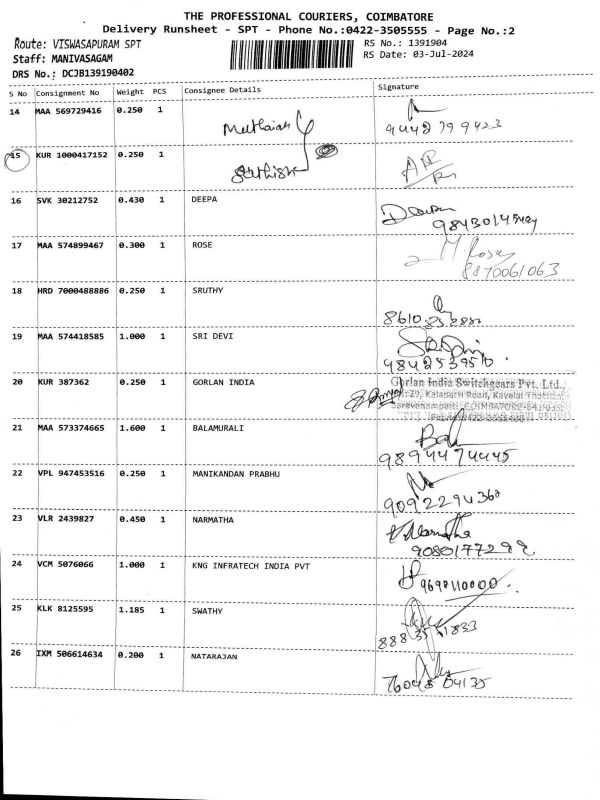 THE PROFESSIONAL COURIERS, COIMBATORE
Delivery Runsheet - SPT - Phone No.:0422-3505555 - Page No.:2
Route: VISWASAPURAM SPT
RS No.: 1391904
Staff: MANIVASAGAM
RS Date: 03-Jul-2024
DRS No.: DCJB139190402
S No Consignment No Weight PCS Consignee Details Signature
14 MAA 569729416 0.250 1
9442799423
15 KUR 1000417152 0.250 1
Sathish
16 SVK 30212752 0.430 1 DEEPA
Deepa
17 MAA 574899467 0.300 1 ROSE
8870061063
18 HRD 7000488886 0.250 1 SRUTHY
19 MAA 574418585 1.000 1 SRI DEVI
20 KUR 387362 0.250 1 GORLAN INDIA
Gorlan India Switchgears Pvt. Ltd.,
21 MAA 573374665 1.600 1 BALAMURALI
9894474445
22 VPL 947453516 0.250 1 MANIKANDAN PRABHU
9092294360
23 VLR 2439827 0.450 1 NARMATHA
9080177299
24 VCM 5076066 1.000 1 KNG INFRATECH INDIA PVT
9698110000
25 KLK 8125595 1.185 1 SWATHY
26 IXM 506614634 0.200 1 NATARAJAN